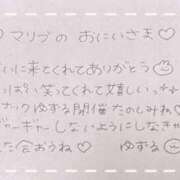 ♡マリブの おにいさま♡
いに来てくれてありがとう
ぱい笑ってくれて嬉しい
ナック ゆずる開催 たのしみね♡
ギャーギャーしないようにしなきゃ
た会おうね♡ ゆずる